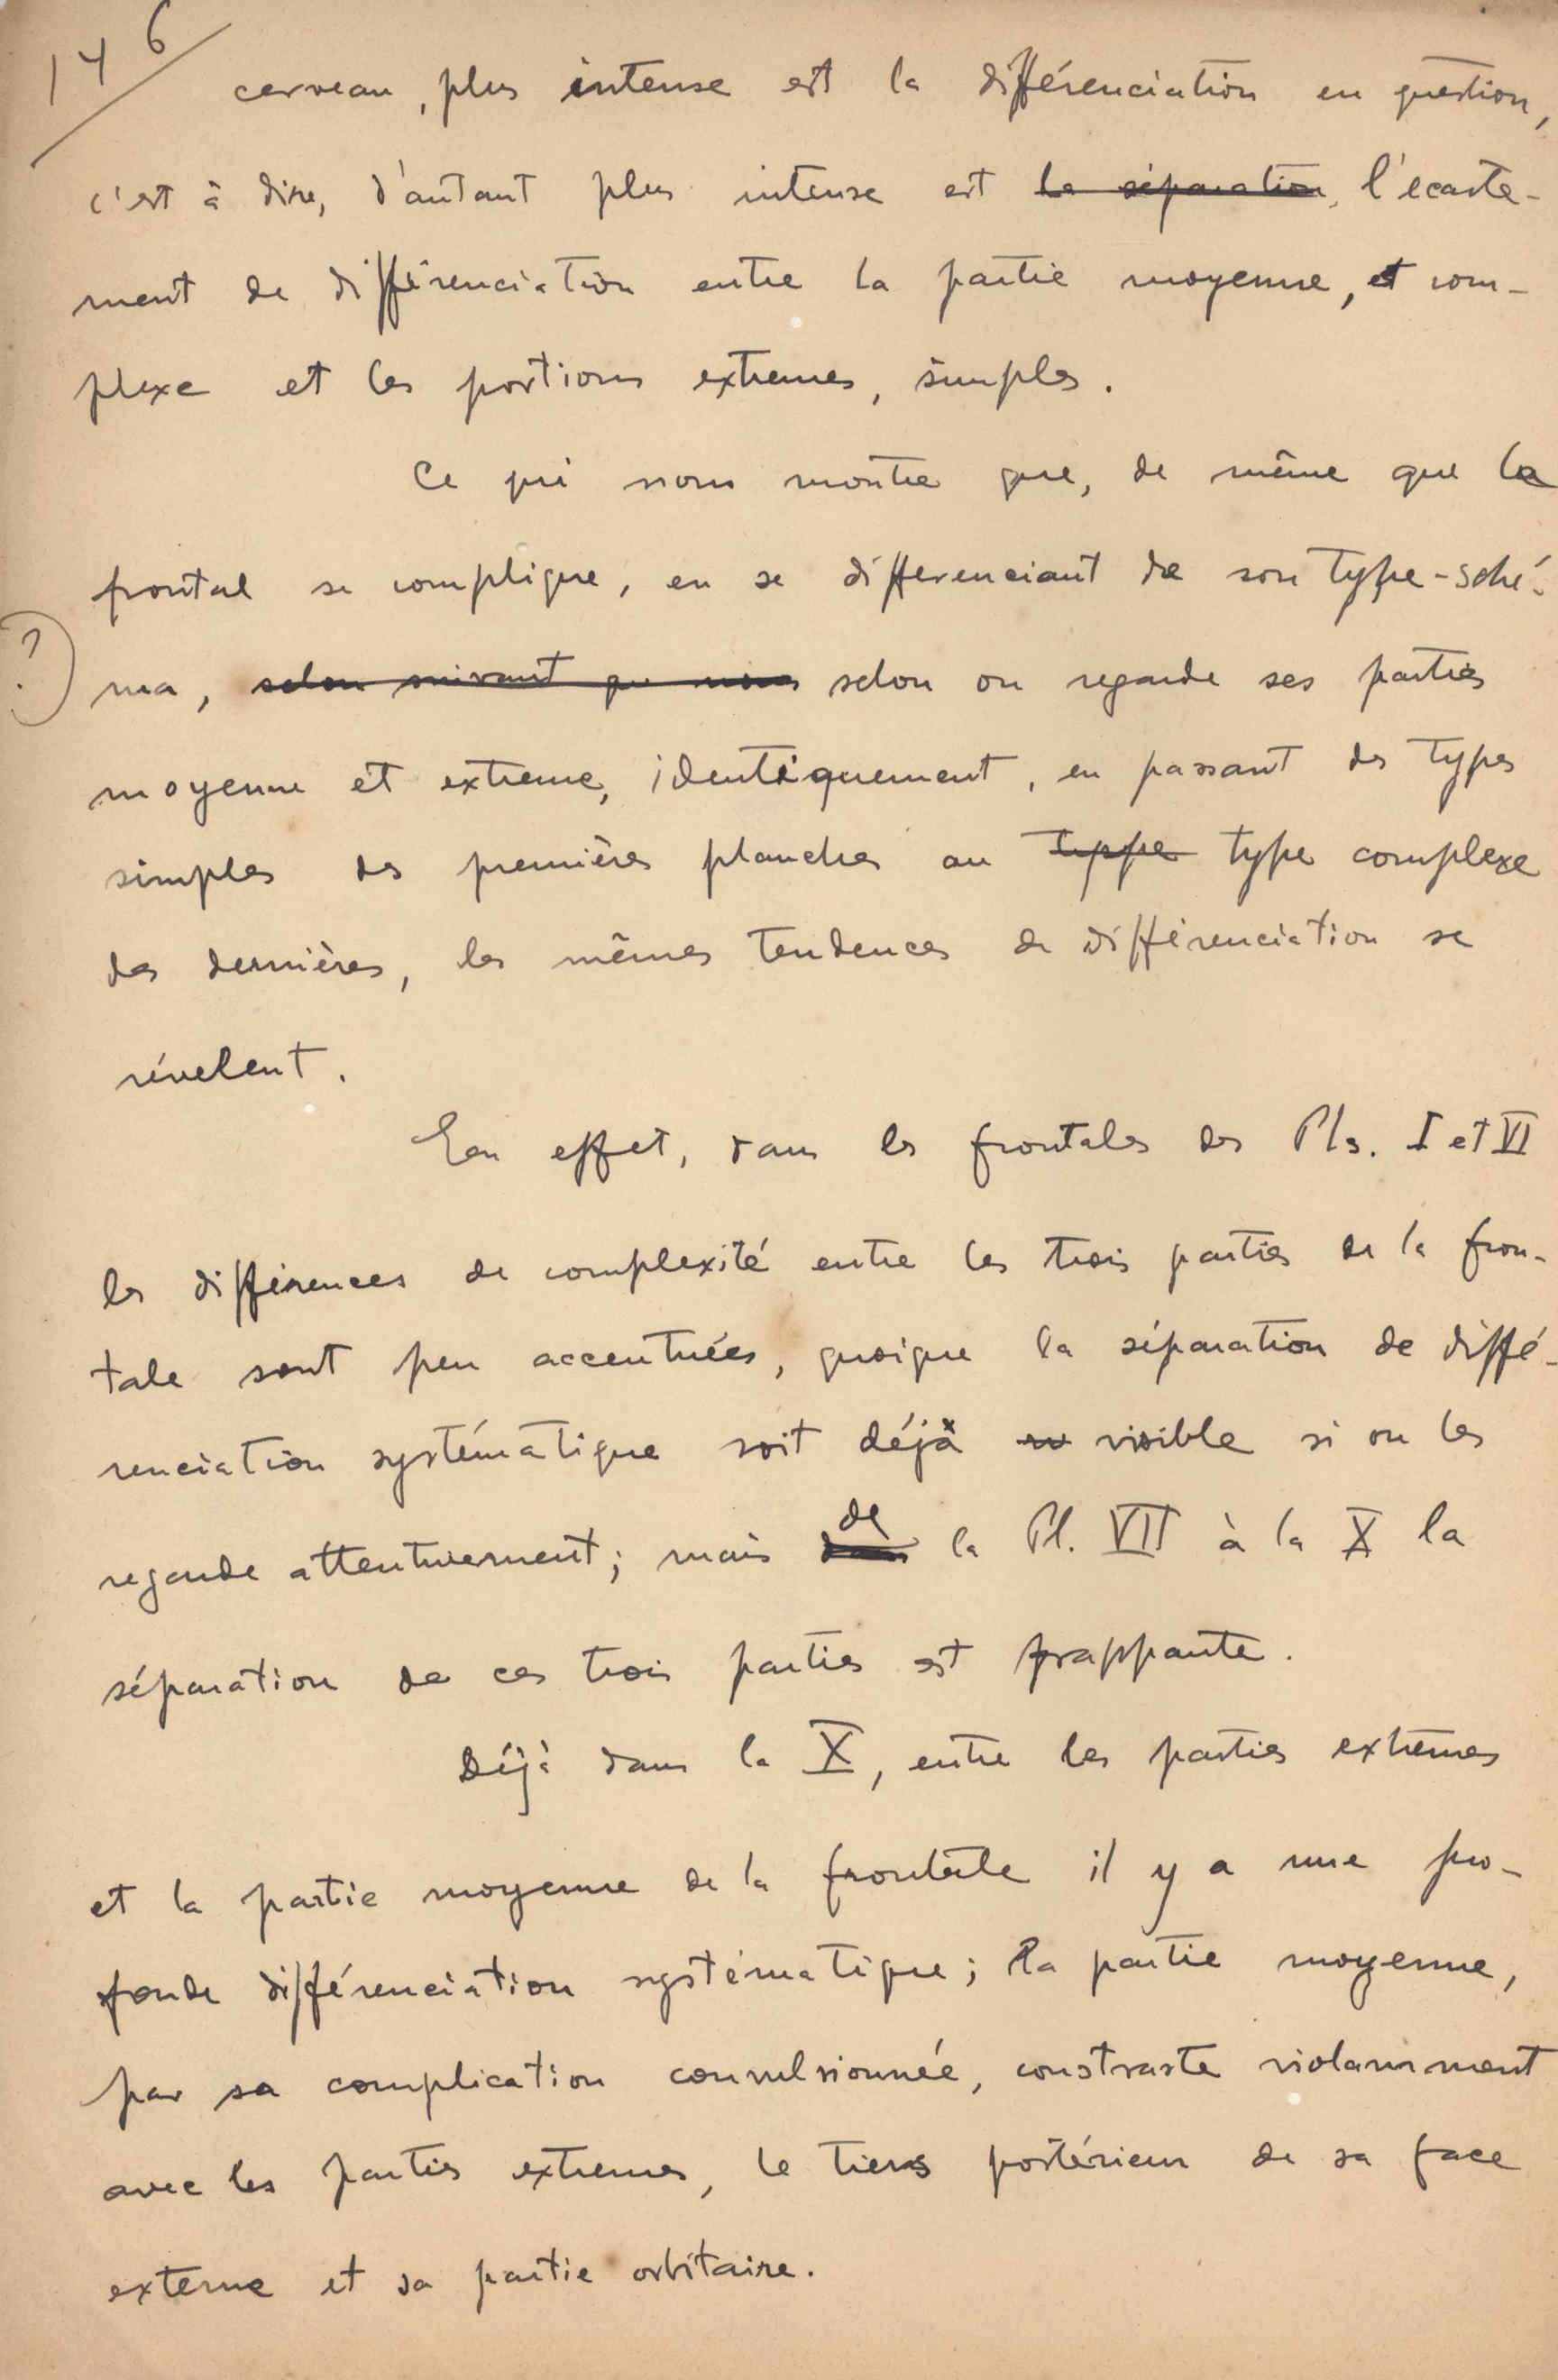 146
cerveau, plus intense est la différenciation en question,
c'est à dire, d'autant plus intense est la séparation, l'écarte-
ment de différenciation entre la partie moyenne, et com-
plexe et les portions extremes, simples.
Ce qui nous montre que, de même que la
frontal se complique, en se differenciant de son type-sché-
(?) ma, selon suivant que nous selon on regarde ses parties
moyenne et extreme, identiquement, en passant des types
simples des premières planches au typpe type complexe
des dernières, les mêmes tendences de différenciation se
révelent.
En effet, dans les frontales des Pls. I et VI
les différences de complexité entre les trois parties de la fron-
tale sont peu accentuées, quoique la séparation de diffé-
renciation systématique soit déjà visible si on les
de
regarde attentivement; mais dans la Pl. VII à la X la
séparation de ces trois parties est frappante.
Déjà dans la X, entre les parties extrêmes
et la partie moyenne de la frontale il y a une pro-
fonde différenciation systématique; la partie moyenne,
par sa complication convulsionnée, constraste violamment
avec les parties extremes, le tiers postérieur de sa face
externe et sa partie orbitaire.